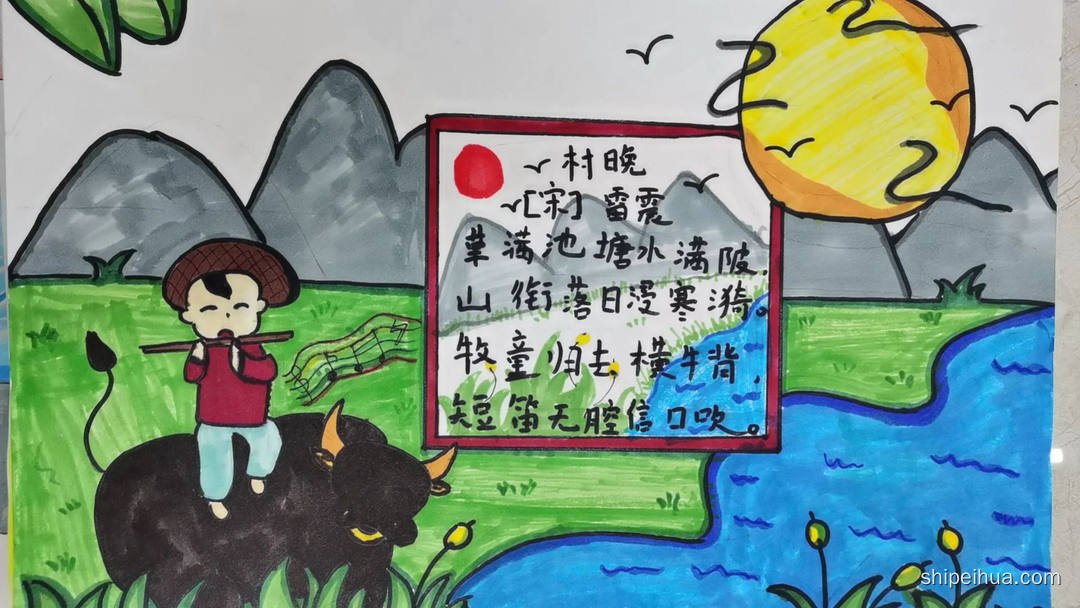 村晚
[宋] 雷震
草满池塘水满陂,
山衔落日浸寒漪。
牧童归去横牛背,
短笛无腔信口吹。
shipeihua.com